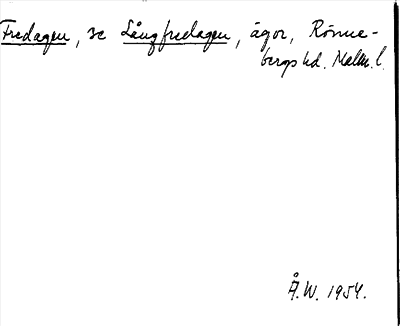 Fredagen, se Långfredagen, ägor, Rönne-
bergs hd. Malm. l.
Å.W. 1954.